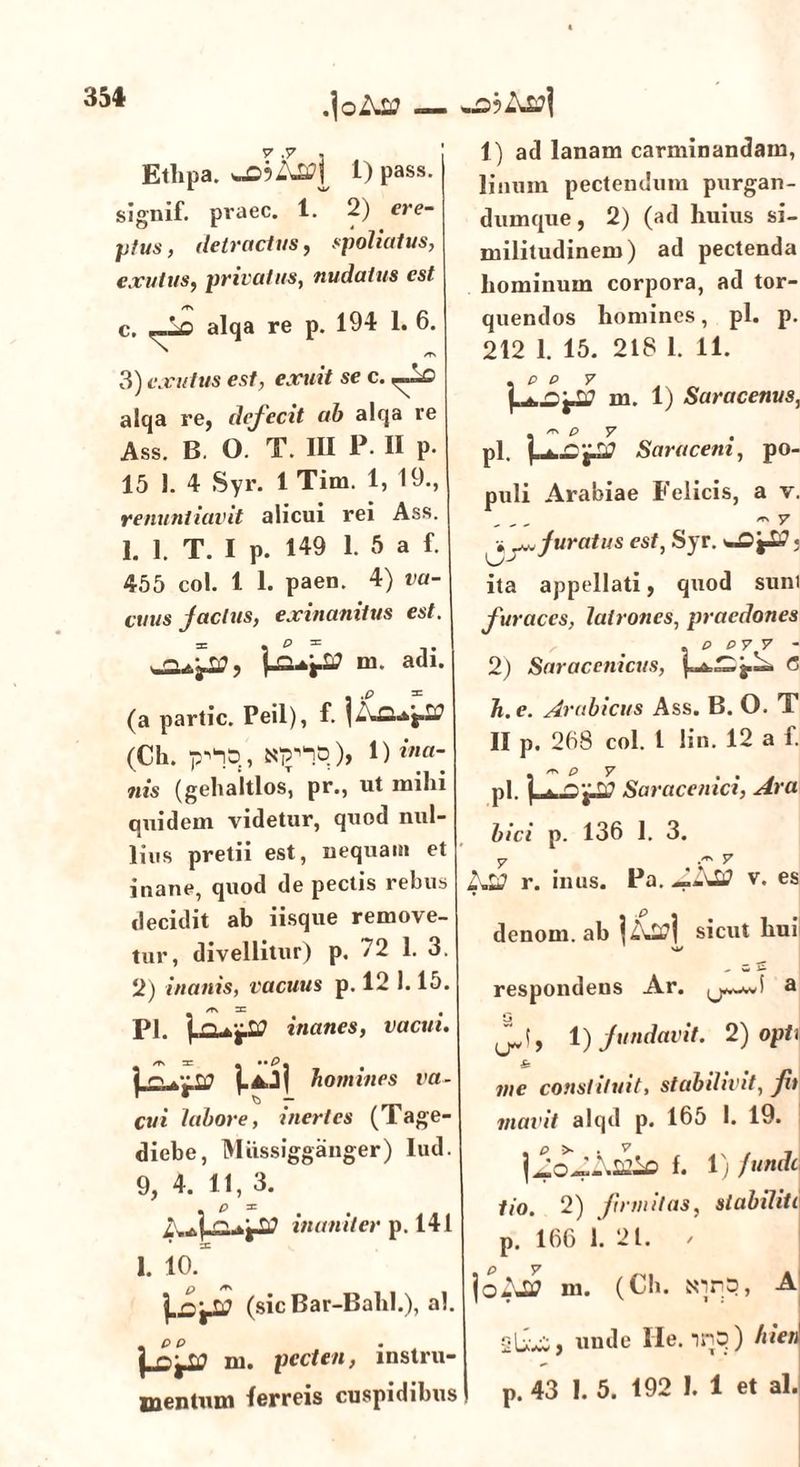 354
.ܐܣܬܘܐ — ܐܣܬܪܩ
Ethpa. ܐܣܬܪܩ 1) pass.
signif. praec. 1. 2) ere-
ptus, detractus, spoliatus,
exutus, privatus, nudatus est
c. ܡܢ alqa re p. 194 l. 6.
3) exutus est, exuit se c. ܡܢ
alqa re, defecit ab alqa re
Ass. B. O. T. III P. II p.
15 l. 4 Syr. 1 Tim. 1, 19.,
renuntiavit alicui rei Ass.
l. l. T. I p. 149 l. 5 a f.
455 col. 1 l. paen. 4) va-
cuus factus, exinanitus est.
ܣܪܝܩ, ܣܪܝܩܐ m. adi.
(a partic. Peil), f. ܣܪܝܩܬܐ
(Ch. סְרִיק, סְרִיקָא), 1) ina-
nis (gehaltlos, pr., ut mihi
quidem videtur, quod nul-
lius pretii est, nequam et
inane, quod de pectis rebus
decidit ab iisque remove-
tur, divellitur) p. 72 l. 3.
2) inanis, vacuus p. 12 l. 15.
Pl. ܣܪܝܩܐ inanes, vacui.
ܐܢܫܐ ܣܪܝܩܐ homines va-
cui labore, inertes (Tage-
diebe, Müssiggänger) Iud.
9, 4. 11, 3.
ܣܪܝܩܐܝܬ inaniter p. 141
l. 10.
ܣܪܩܐ (sic Bar-Bahl.), al.
ܣܪܩܐ m. pecten, instru-
mentum ferreis cuspidibus
1) ad lanam carminandam,
linum pectendum purgan-
dumque, 2) (ad huius si-
militudinem) ad pectenda
hominum corpora, ad tor-
quendos homines, pl. p.
212 l. 15. 218 l. 11.
ܣܪܩܝܐ m. 1) Saracenus,
pl. ܣܪܩܝܐ Saraceni, po-
puli Arabiae Felicis, a v.
سرق furatus est, Syr. ܣܪܩ;
ita appellati, quod sunt
furaces, latrones, praedones
2) Saracenicus,
h. e. Arabicus Ass. B. O. T
II p. 268 col. 1 lin. 12 a f.
pl. ܣܪܩܝܐ Saracenici, Ara
bici p. 136 l. 3.
ܣܬ r. inus. Pa. ܣܬܬ v. es
denom. ab ܐܣܬܐ sicut hui
respondens Ar. اسس a
أس, 1) fundavit. 2) opti
me constituit, stabilivit, fir
mavit alqd p. 165 l. 19.
ܡܣܬܬܘܬܐ f. 1) funda
tio. 2) firmitas, stabilita
p. 166 l. 21.
ܣܬܘܐ m. (Ch. סִתְוָא, A
شتاء, unde He. סְתָו) hiem
p. 43 l. 5. 192 l. 1 et al.